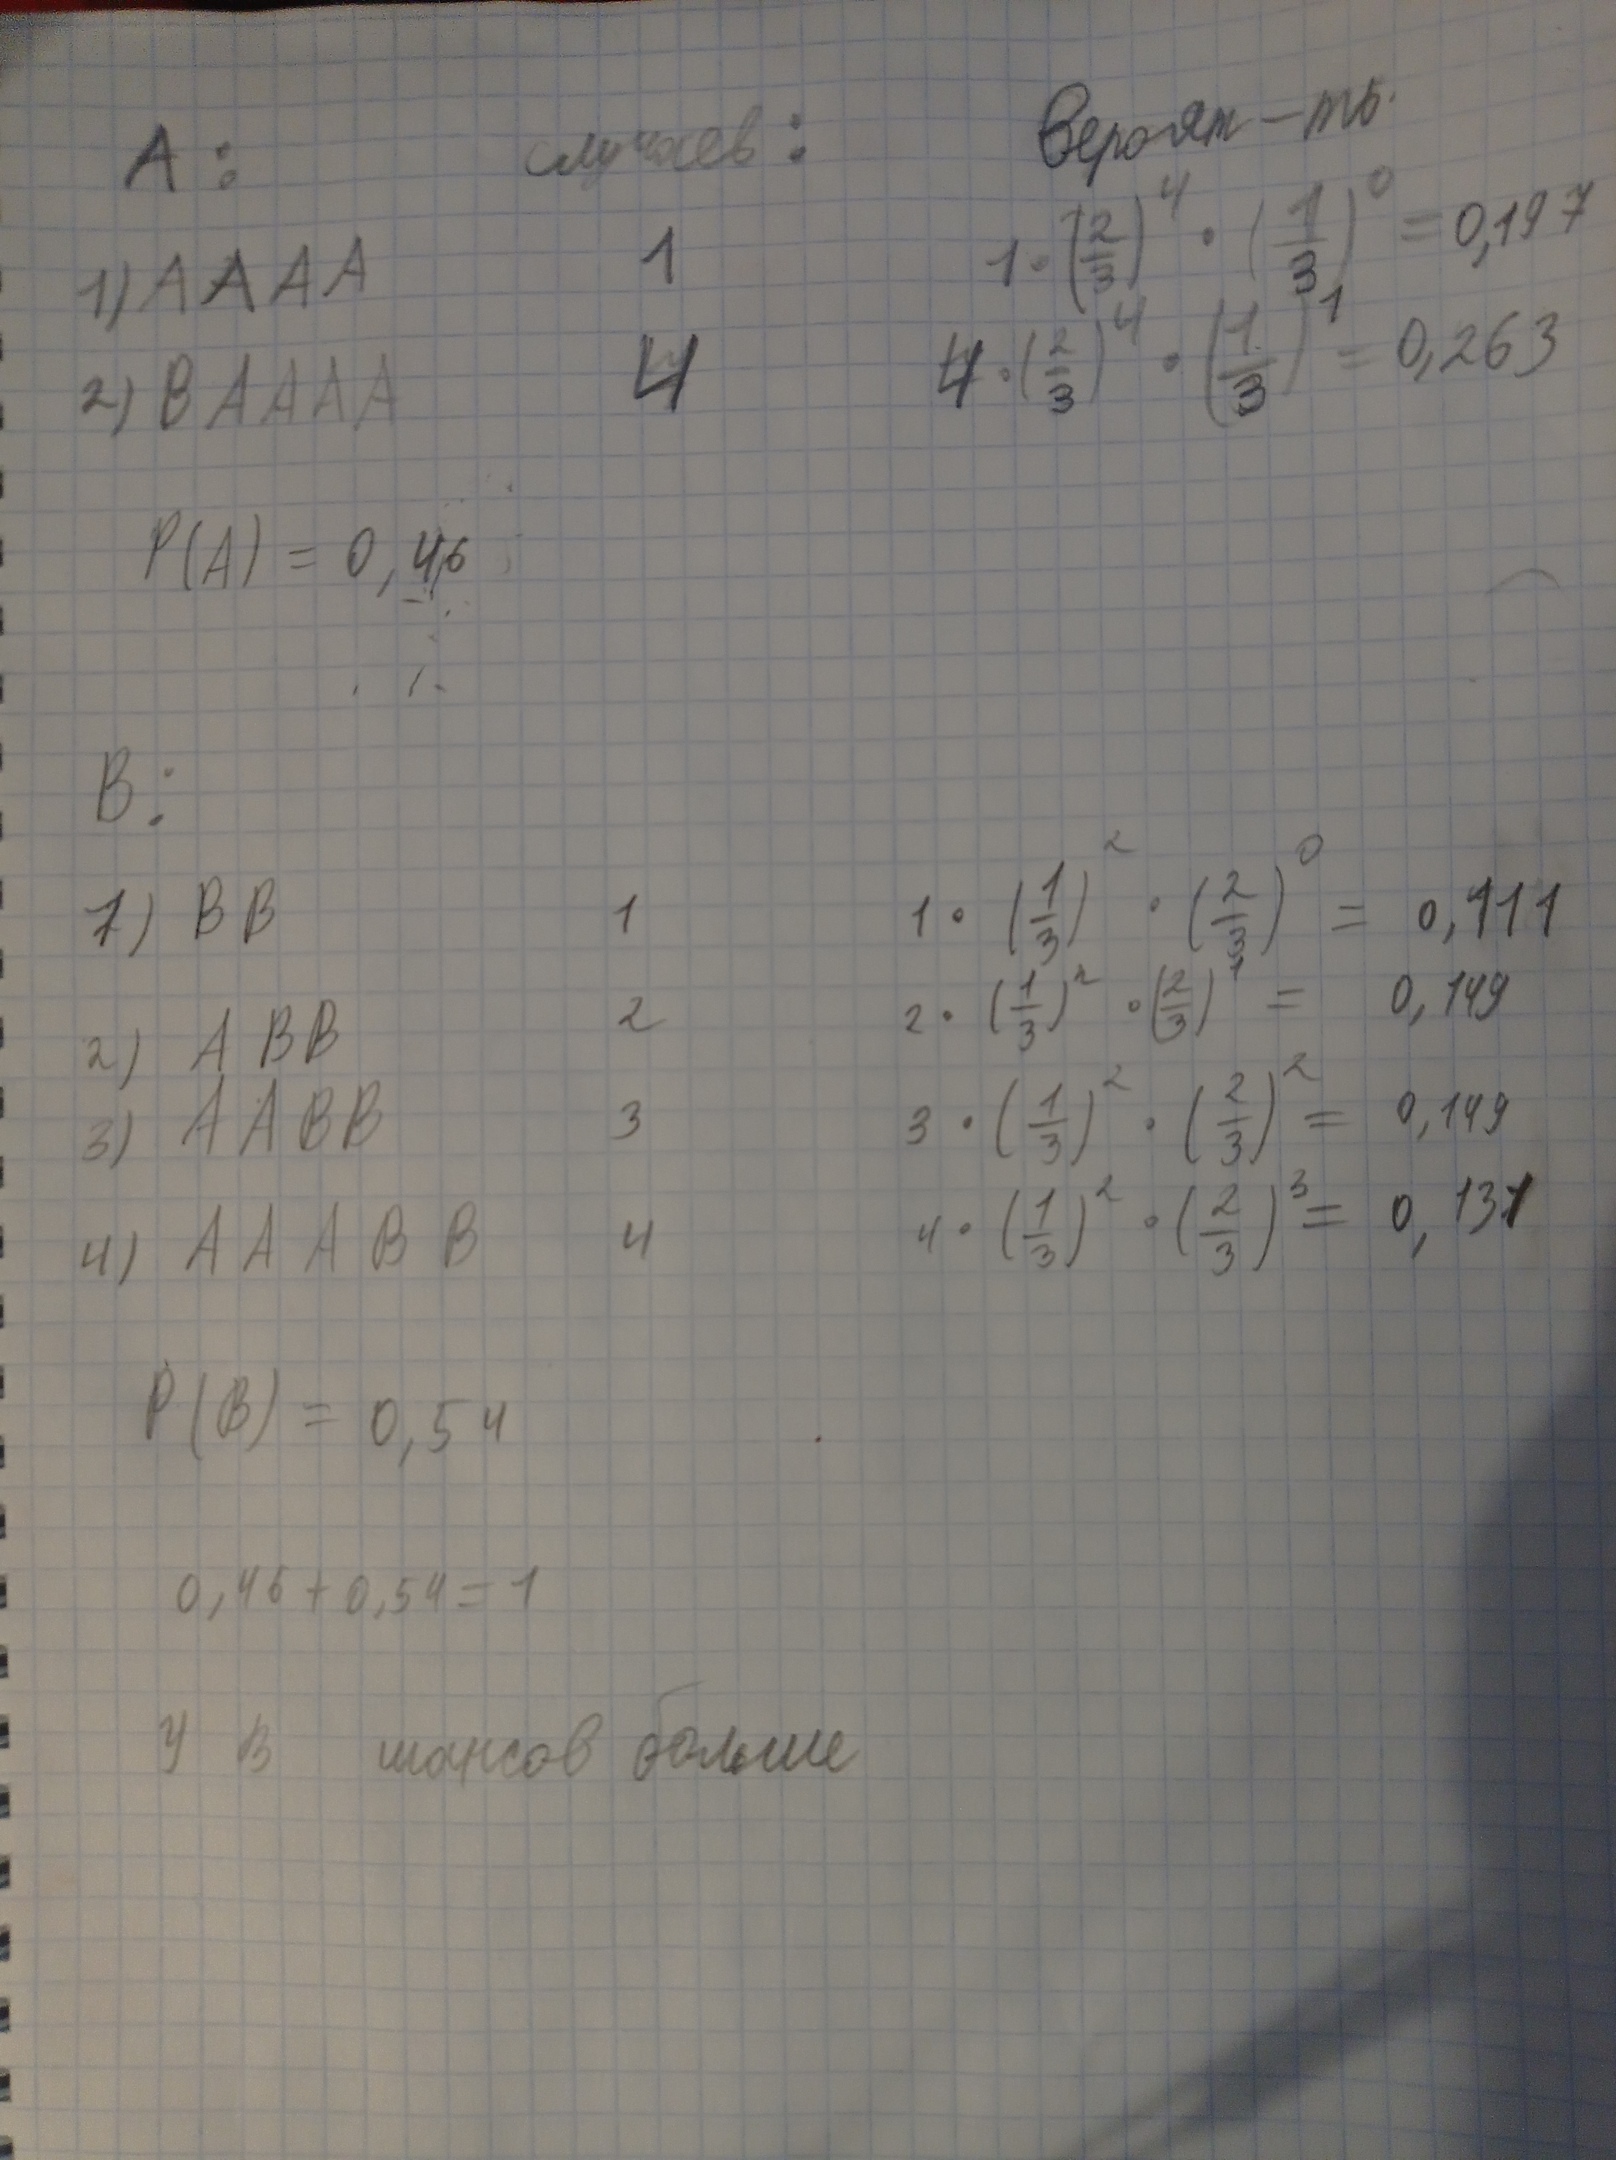 А: случаев: Вероят-ть.
1) А А А А 1 1 · (2/3)^4 · (1/3)^0 = 0,197
2) В А А А А 4 4 · (2/3)^4 · (1/3)^1 = 0,263
P(A) = 0,46
В:
1) В В 1 1 · (1/3)^2 · (2/3)^0 = 0,111
2) А В В 2 2 · (1/3)^2 · (2/3)^1 = 0,149
3) А А В В 3 3 · (1/3)^2 · (2/3)^2 = 0,149
4) А А А В В 4 4 · (1/3)^2 · (2/3)^3 = 0,131
P(B) = 0,54
0,46 + 0,54 = 1
У В шансов больше